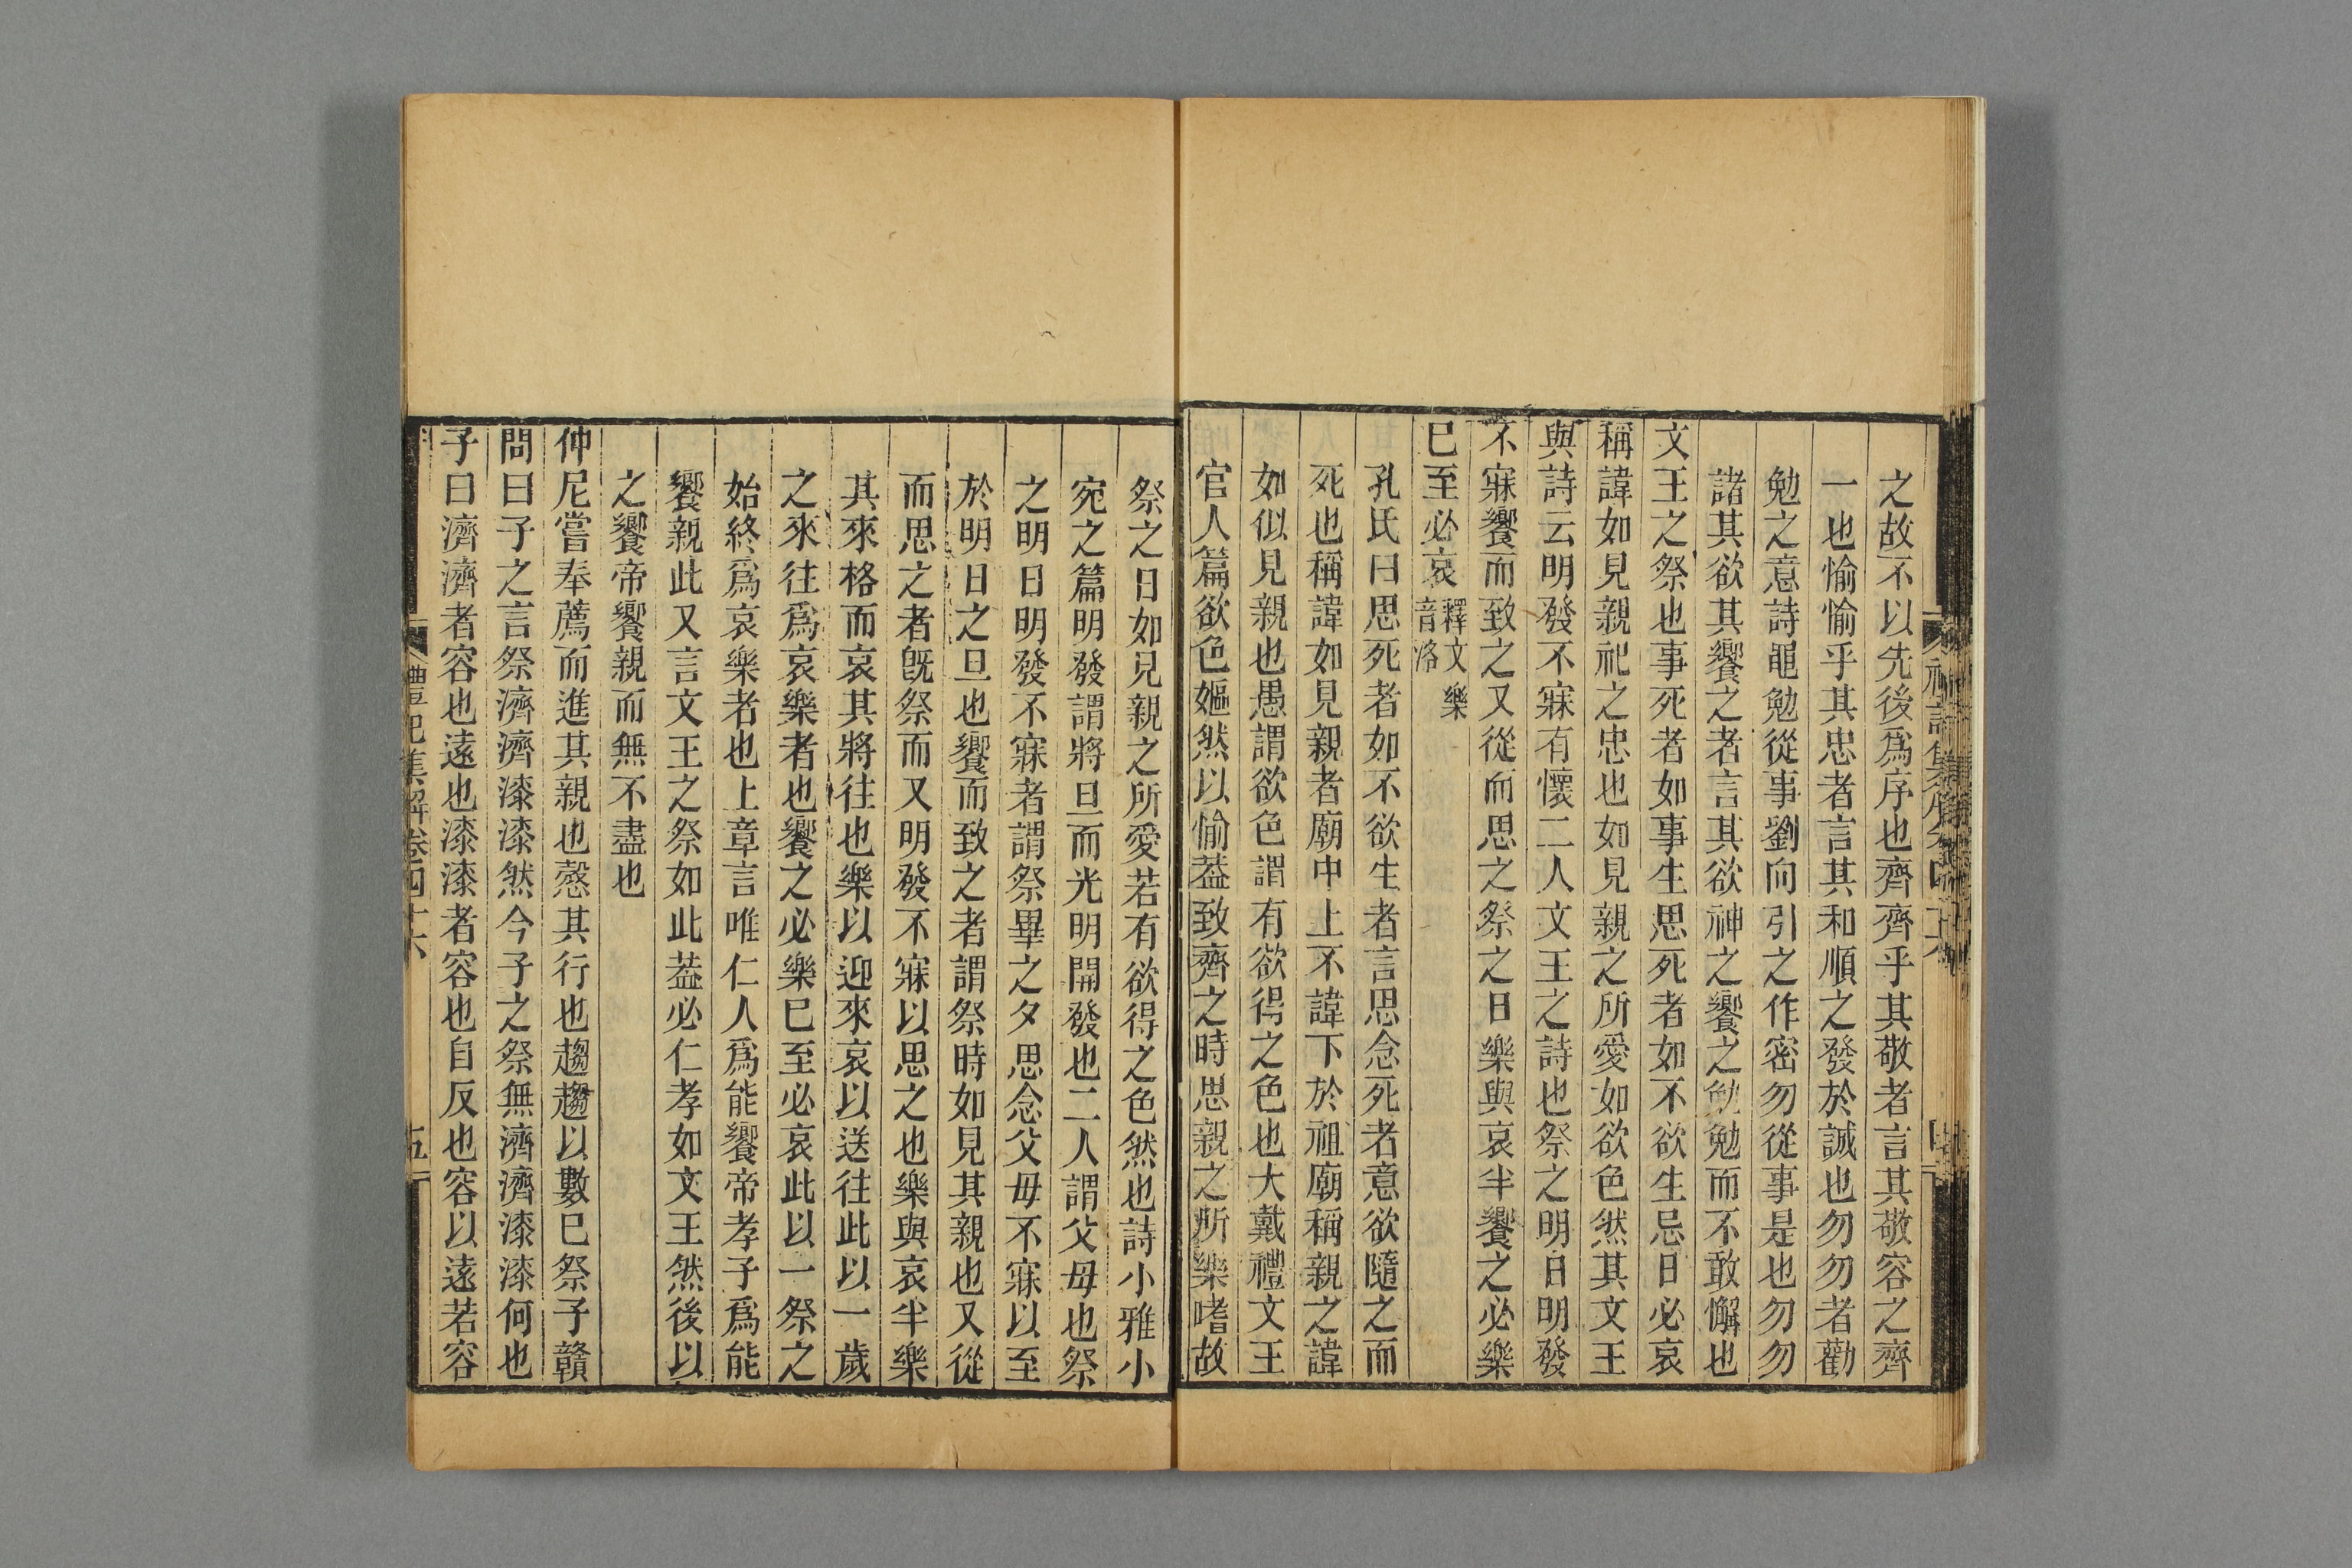 之故不以先後爲序也齊齊乎其敬者言其敬容之齊
一也愉愉乎其忠者言其和順之發於誠也勿勿者勸
勉之意詩黽勉從事劉向引之作密勿從事是也勿勿
諸其欲其饗之者言其欲神之饗之勉勉而不敢懈也
文王之祭也事死者如事生思死者如不欲生忌日必哀
稱諱如見親祀之忠也如見親之所愛如欲色然其文王
與詩云明發不寐有懷二人文王之詩也祭之明日明發
不寐饗而致之又從而思之祭之日樂與哀半饗之必樂
已至必哀釋文樂音洛
孔氏曰思死者如不欲生者言思念死者意欲隨之而
死也稱諱如見親者廟中上不諱下於祖廟稱親之諱
如似見親也愚謂欲色謂有欲得之色也大戴禮文王
官人篇欲色嫗然以愉葢致齊之時思親之所樂嗜故
祭之日如見親之所愛若有欲得之色然也詩小雅小
宛之篇明發謂將旦而光明開發也二人謂父母也祭
之明日明發不寐者謂祭畢之夕思念父母不寐以至
於明日之旦也饗而致之者謂祭時如見其親也又從
而思之者旣祭而又明發不寐以思之也樂與哀半樂
其來格而哀其將往也樂以迎來哀以送往此以一歲
之來往爲哀樂者也饗之必樂已至必哀此以一祭之
始終爲哀樂者也上章言唯仁人爲能饗帝孝子爲能
饗親此又言文王之祭如此葢必仁孝如文王然後以
之饗帝饗親而無不盡也
仲尼嘗奉薦而進其親也愨其行也趨趨以數已祭子贛
問曰子之言祭濟濟漆漆然今子之祭無濟濟漆漆何也
子曰濟濟者容也遠也漆漆者容也自反也容以遠若容
禮記集解卷四十六
五